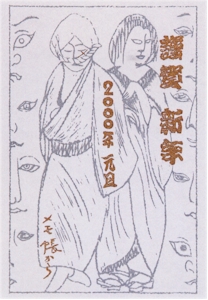 謹賀新年
2000年 元旦
メモ帳から